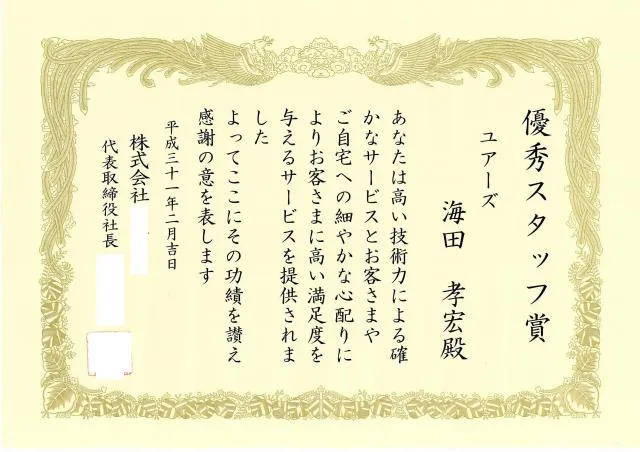 優秀スタッフ賞
ユアーズ
海田 孝宏殿
あなたは高い技術力による確
かなサービスとお客さまや
ご自宅への細やかな心配りに
よりお客さまに高い満足度を
与えるサービスを提供されま
した
よってここにその功績を讃え
感謝の意を表します
平成三十一年二月吉日
株式会社
代表取締役社長